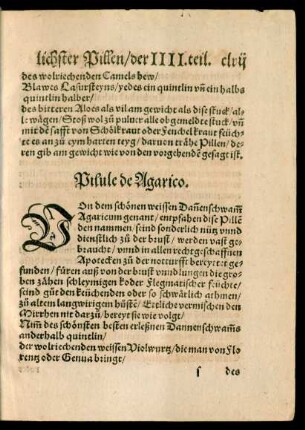 lichster Pillen/der IIII. teil. clrij
des wolriechenden Camels hew/
Blawes Lasursteyns/yedes ein quintlin vñ ein halbs
quintlin halber/
des bitteren Aloes als vil am gewicht als dise stuck/al-
le wägen/Stoß wol zů puluer alle obgemeldte stuck/vñ
mit dẽ safft von Schölkraut oder Fenchelkraut feücht-
te es an zů eym harten teyg/daruon trähe Pillen/de-
ren gib am gewicht wie von den vorgehendẽ gesagt ist.
Pilule de Agarico.
Von dem schönen weissen Dañenschwam̃
Agaricum genant/entpfahen dise Pillẽ
den nammen/seind sonderlich nütz vnnd
dienstlich zů der brust/werden vast ge-
braucht/vnnd in allen rechtgeschaffnen
Apotecken zů der notturfft bereytet ge-
funden/füren auß von der brust vnnd lungen die gro-
ben zähen schleymigen koder Flegmatischer feüchte/
seind gůt den keüchenden oder so schwärlich athmen/
zů altem langwirigen hůstẽ/Etliche vermischen den
Mirrhen mit darzů/bereyt sie wie volgt/
Nim̃ des schönsten besten erleßnen Dannenschwam̃s
anderhalb quintlin/
der wolriechenden weissen Violwurtz/die man von Flo-
rentz oder Genua bringt/
s des